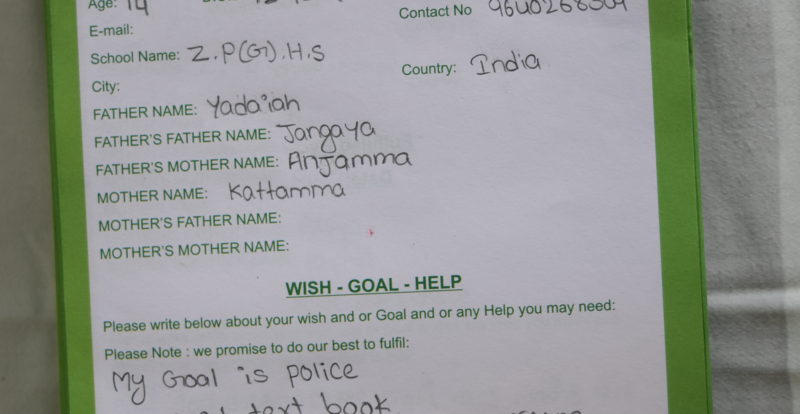 Age: 14
Contact No 9640268504
E-mail:
School Name: Z.P(G).H.S
Country: India
City:
FATHER NAME: Yadaiah
FATHER'S FATHER NAME: Jangaya
FATHER'S MOTHER NAME: Anjamma
MOTHER NAME: Kattamma
MOTHER'S FATHER NAME:
MOTHER'S MOTHER NAME:
WISH - GOAL - HELP
Please write below about your wish and or Goal and or any Help you may need:
Please Note : we promise to do our best to fulfil:
My Goal is police
text book